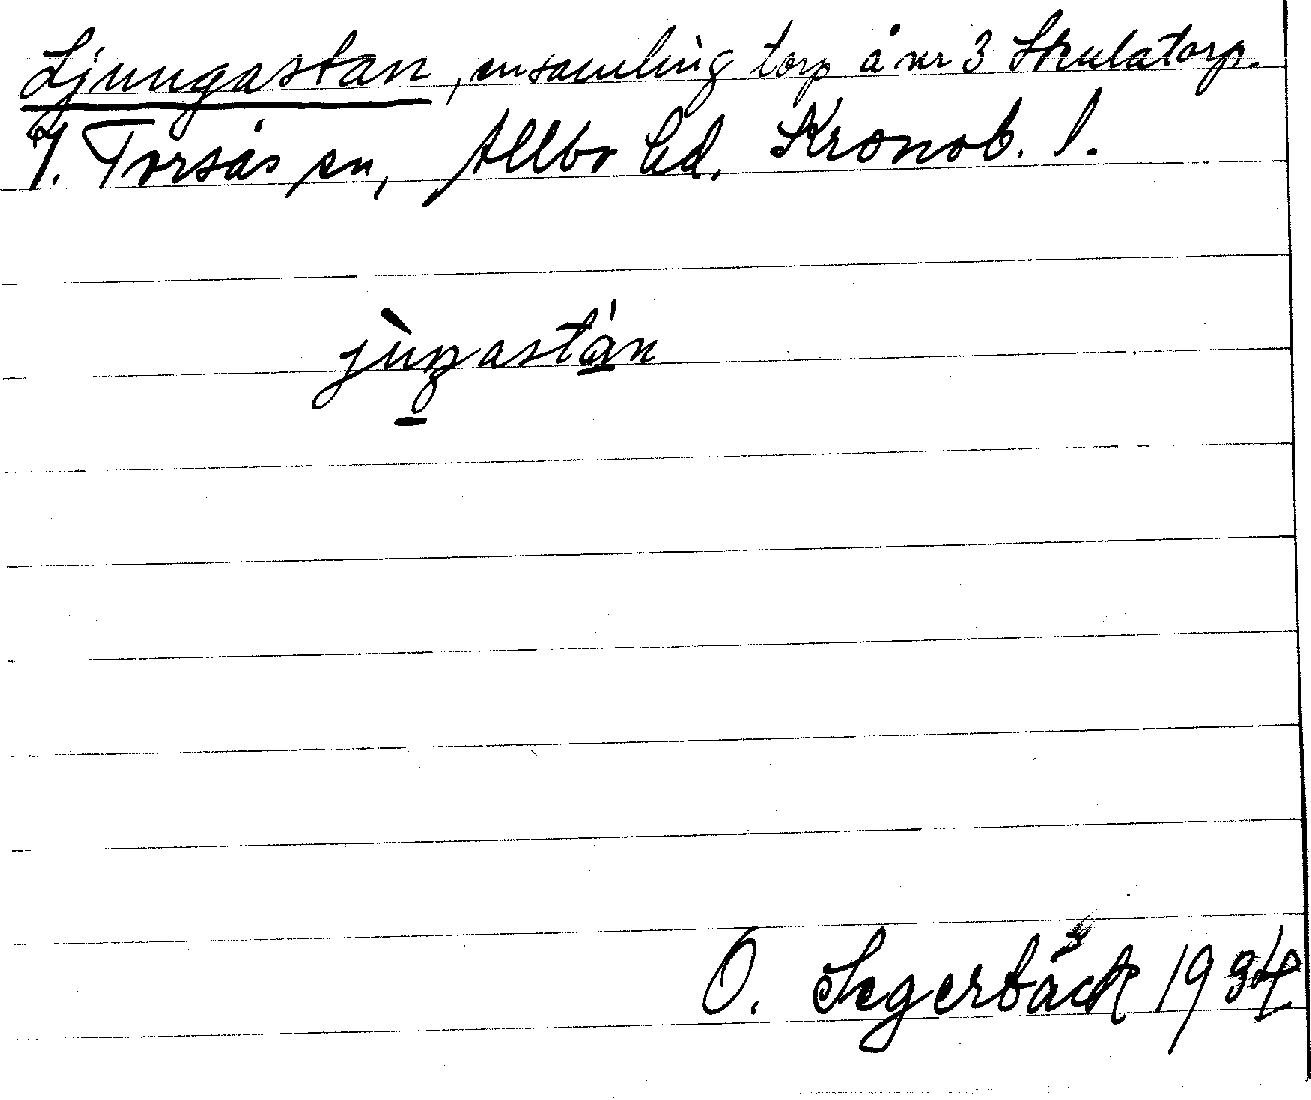 Ljungastan, en samling torp å nr 3 Skulatorp.
V. Torsås sn, Allbo hd. Kronob. l.
jùŋastán
O. Segerbäck 1934